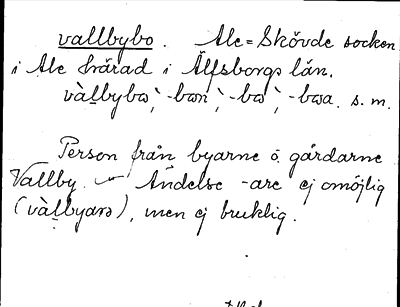 vallbybo. Ale=Skövde socken
i Ale härad i Älfsborgs län.
vàl̲bybɷ, -bɷn, -bɷ, -bɷa. s. m.
Person från byarne o. gårdarne
Vallby. — Ändelse -are ej omöjlig
(vàl̲byarə), men ej bruklig.